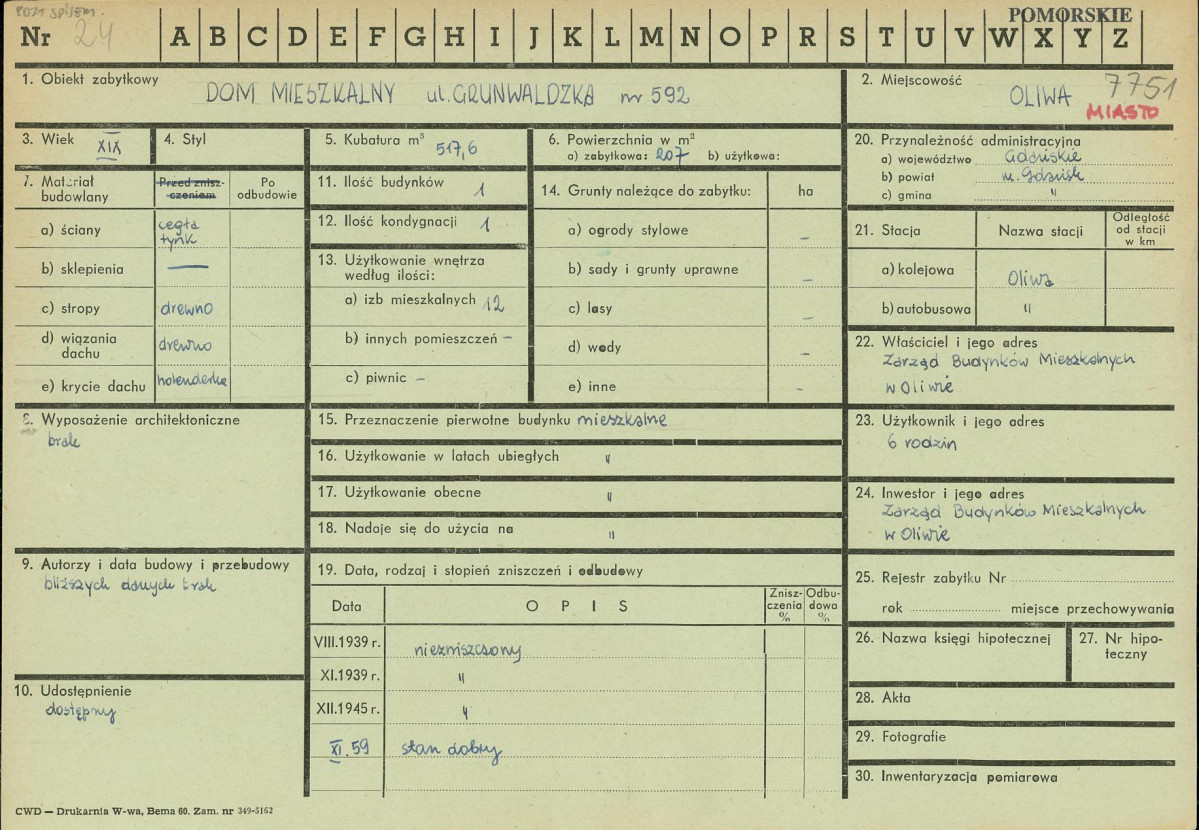 POZA SPISEM.
POMORSKIE
Nr 24 A B C D E F G H I J K L M N O P R S T U V W X Y Z
1. Obiekt zabytkowy
DOM MIESZKALNY ul. GRUNWALDZKA nr 592
2. Miejscowość
7751
OLIWA
MIASTO
3. Wiek XIX
4. Styl
5. Kubatura m³ 517,6
6. Powierzchnia w m²
a) zabytkowa: 207 b) użytkowa:
7. Materiał budowlany
Przed znisz-czeniem
Po odbudowie
a) ściany cegła tynk
b) sklepienia —
c) stropy drewno
d) wiązania dachu drewno
e) krycie dachu holenderka
8. Wyposażenie architektoniczne
brak
9. Autorzy i data budowy i przebudowy
bliższych danych brak
10. Udostępnienie
dostępny
11. Ilość budynków 1
12. Ilość kondygnacji 1
13. Użytkowanie wnętrza
według ilości:
a) izb mieszkalnych 12
b) innych pomieszczeń –
c) piwnic –
14. Grunty należące do zabytku: ha
a) ogrody stylowe –
b) sady i grunty uprawne –
c) lasy –
d) wody –
e) inne –
15. Przeznaczenie pierwotne budynku mieszkalne
16. Użytkowanie w latach ubiegłych "
17. Użytkowanie obecne "
18. Nadaje się do użycia na "
19. Data, rodzaj i stopień zniszczeń i odbudowy
Data O P I S Znisz-czenia % Odbu-dowa %
VIII.1939 r. niezniszczony
XI.1939 r. "
XII.1945 r. "
XI.59 stan dobry
20. Przynależność administracyjna
a) województwo Gdańskie
b) powiat m. Gdańsk
c) gmina "
21. Stacja Nazwa stacji Odległość od stacji w km
a) kolejowa Oliwa
b) autobusowa "
22. Właściciel i jego adres
Zarząd Budynków Mieszkalnych
w Oliwie
23. Użytkownik i jego adres
6 rodzin
24. Inwestor i jego adres
Zarząd Budynków Mieszkalnych
w Oliwie
25. Rejestr zabytku Nr
rok miejsce przechowywania
26. Nazwa księgi hipotecznej
27. Nr hipo-
teczny
28. Akta
29. Fotografie
30. Inwentaryzacja pomiarowa
CWD — Drukarnia W-wa, Bema 60. Zam. nr 349-5162